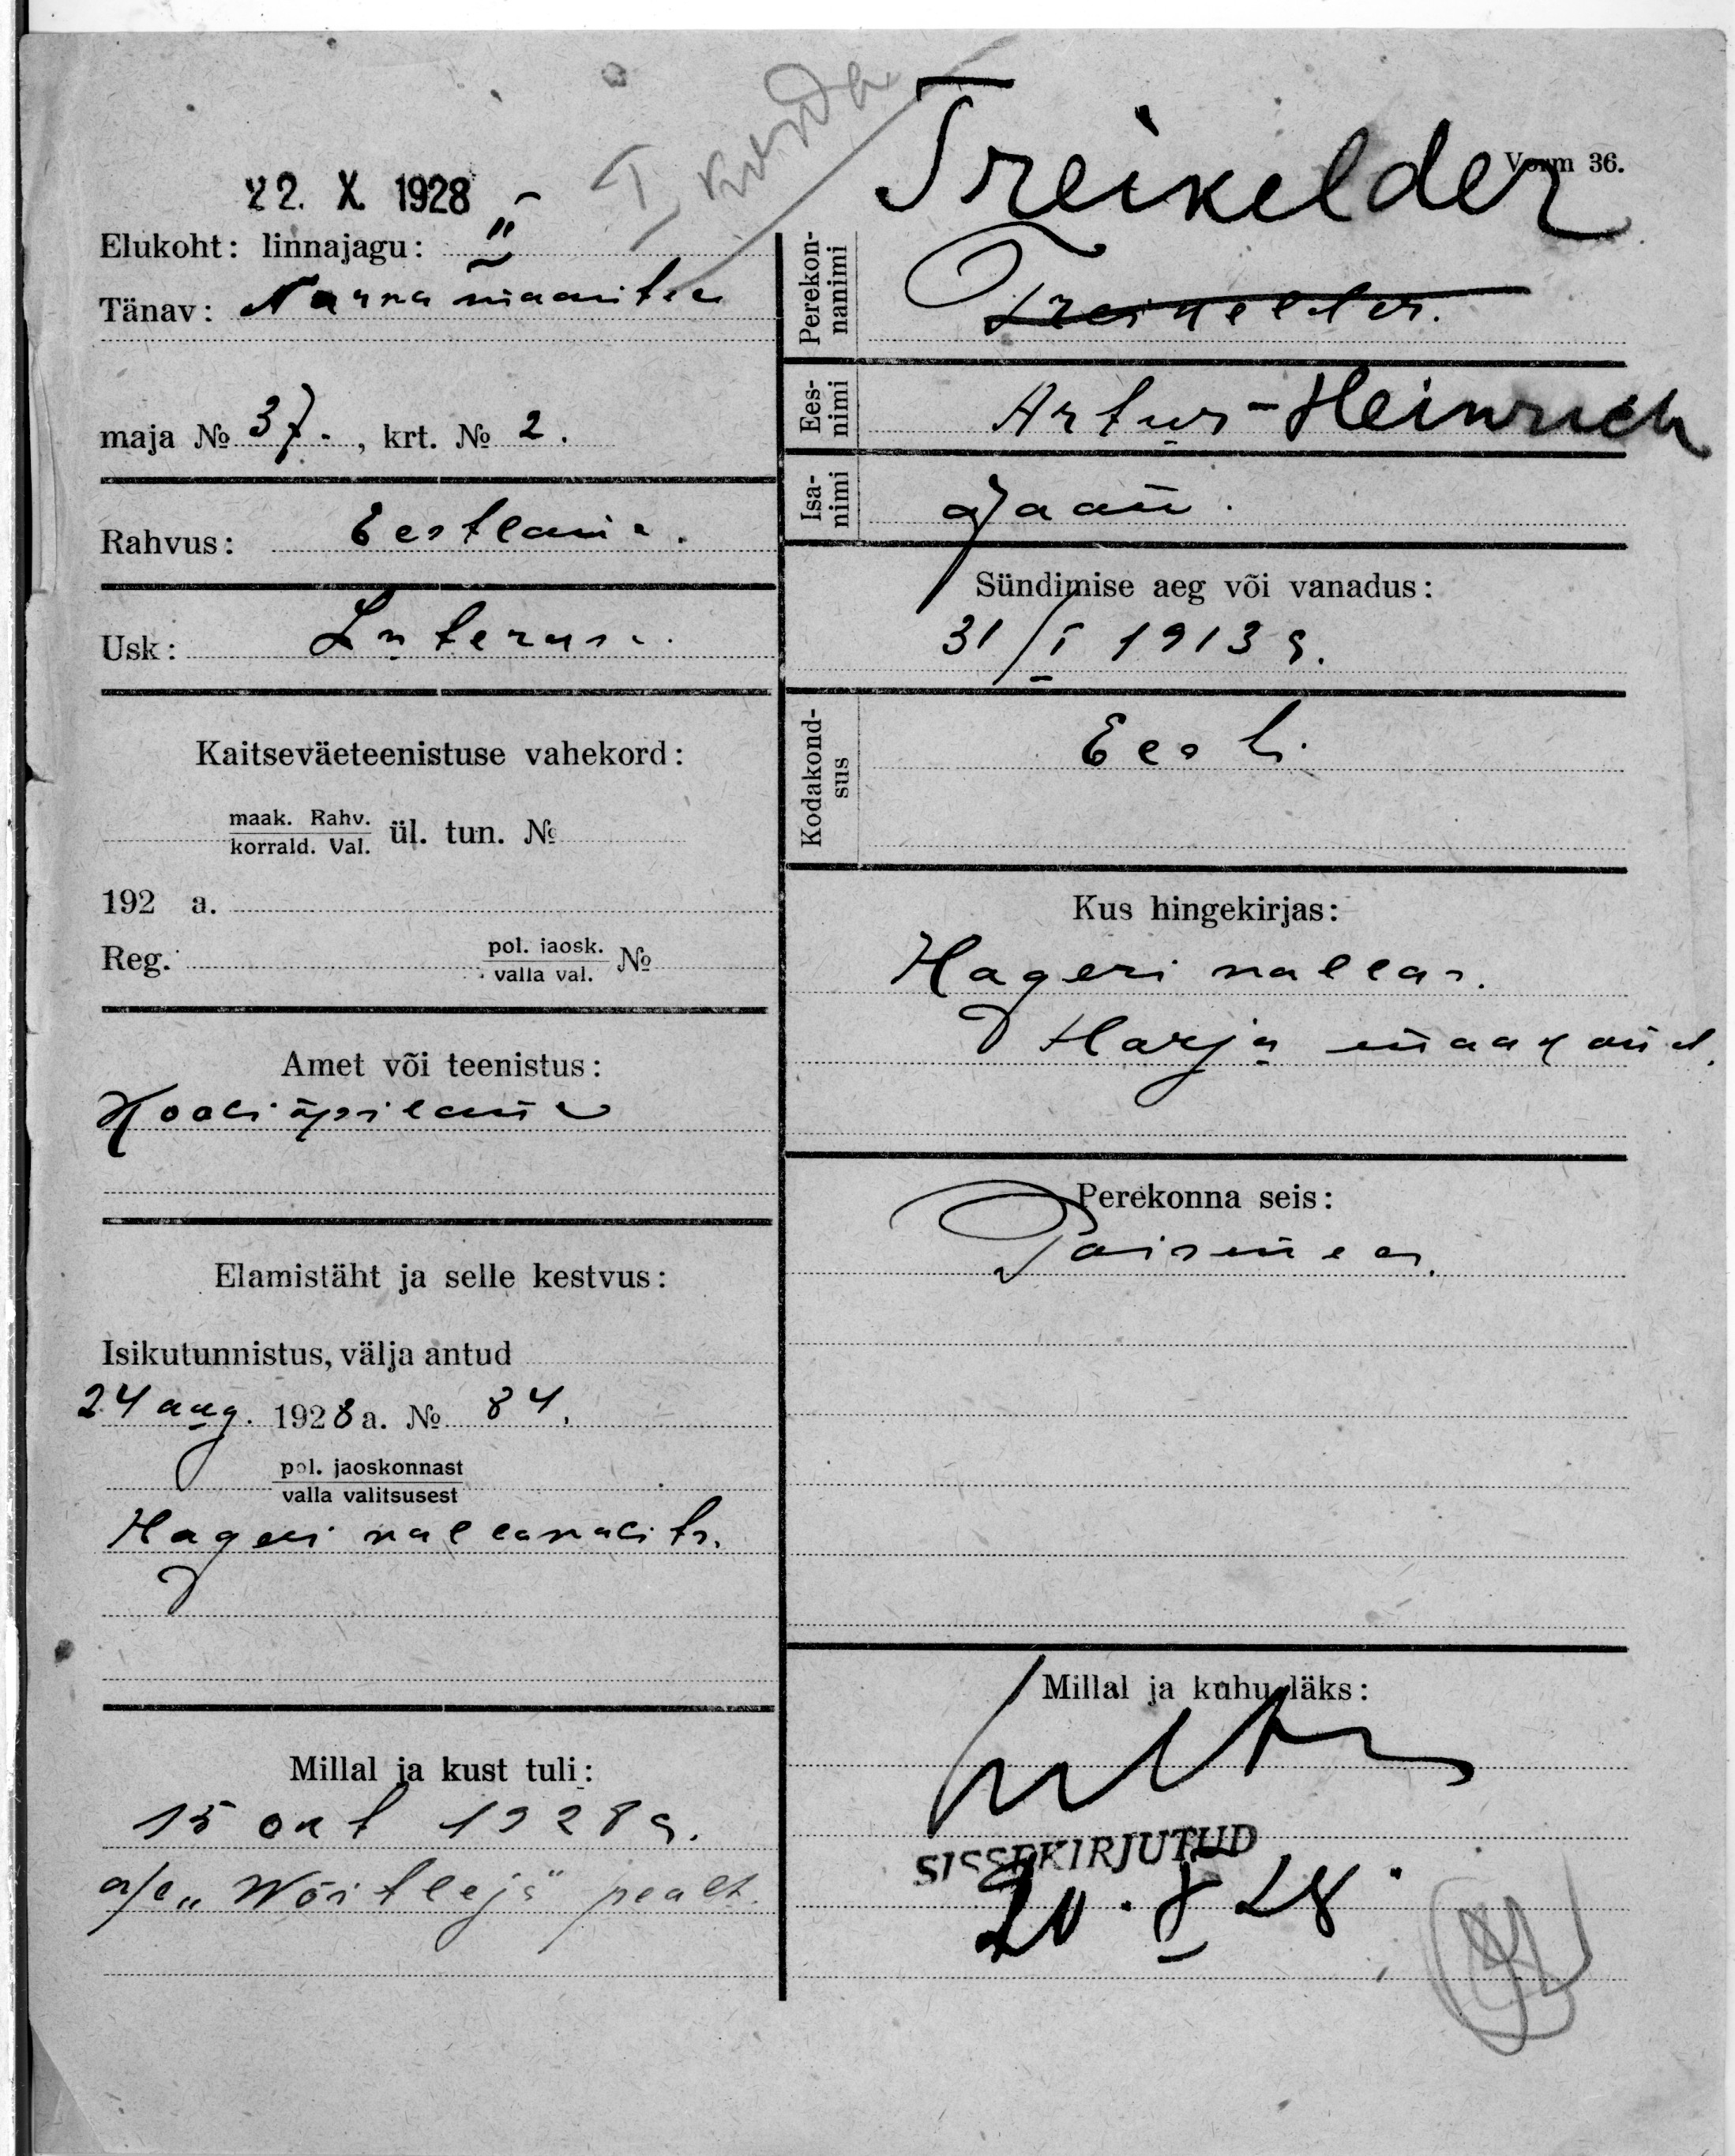 I korda
22. X. 1928
Elukoht: linnajagu: II
Tänav: Narva maantee
maja № 37., krt. № 2.
Rahvus: Eestlane.
Usk: Luterus.
Kaitseväeteenistuse vahekord:
maak. Rahv.
korrald. Val. ül. tun. №
192 a.
Reg. pol. jaosk.
valla val. №
Amet või teenistus:
Kooliõpilane
Elamistäht ja selle kestvus:
Isikutunnistus, välja antud
24 aug. 1928 a. № 84.
pol. jaoskonnast
valla valitsusest
Hageri vallavalits.
Millal ja kust tuli:
15 okt 1928 a.
a/l „Võitleja" pealt.
Vorm 36.
Treikelder
Perekonnanimi
Treikelder.
Eesnimi
Artur-Heinrich
Isanimi
Jaan.
Sündimise aeg või vanadus:
31/I 1913 a.
Kodakondsus
Eesti.
Kus hingekirjas:
Hageri vallas.
Harju maakond.
Perekonna seis:
Poissmees.
Millal ja kuhu läks:
SISSEKIRJUTUD
20. X 28.